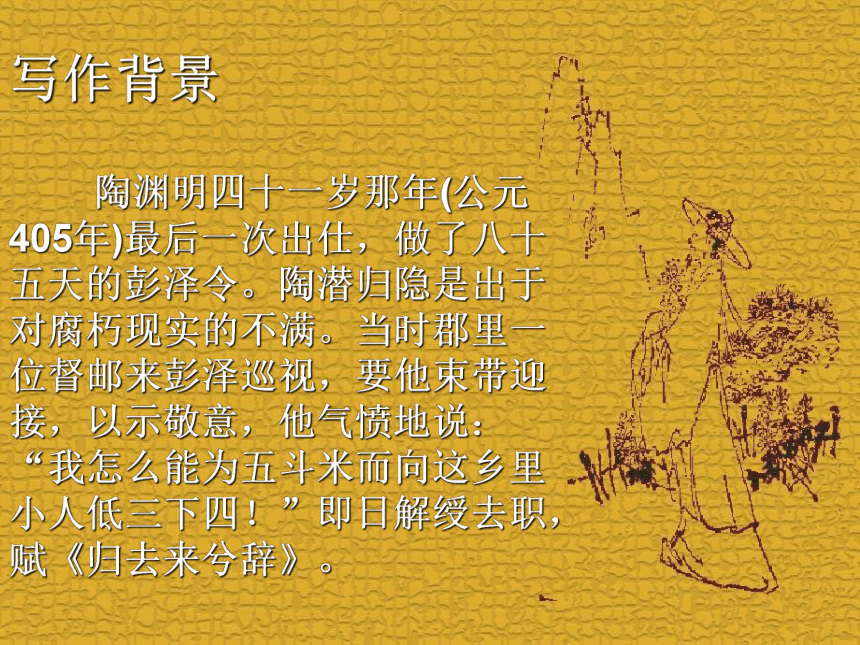 写作背景
陶渊明四十一岁那年(公元
405年)最后一次出仕，做了八十
五天的彭泽令。陶潜归隐是出于
对腐朽现实的不满。当时郡里一
位督邮来彭泽巡视，要他束带迎
接，以示敬意，他气愤地说：
“我怎么能为五斗米而向这乡里
小人低三下四！”即日解绶去职，
赋《归去来兮辞》。